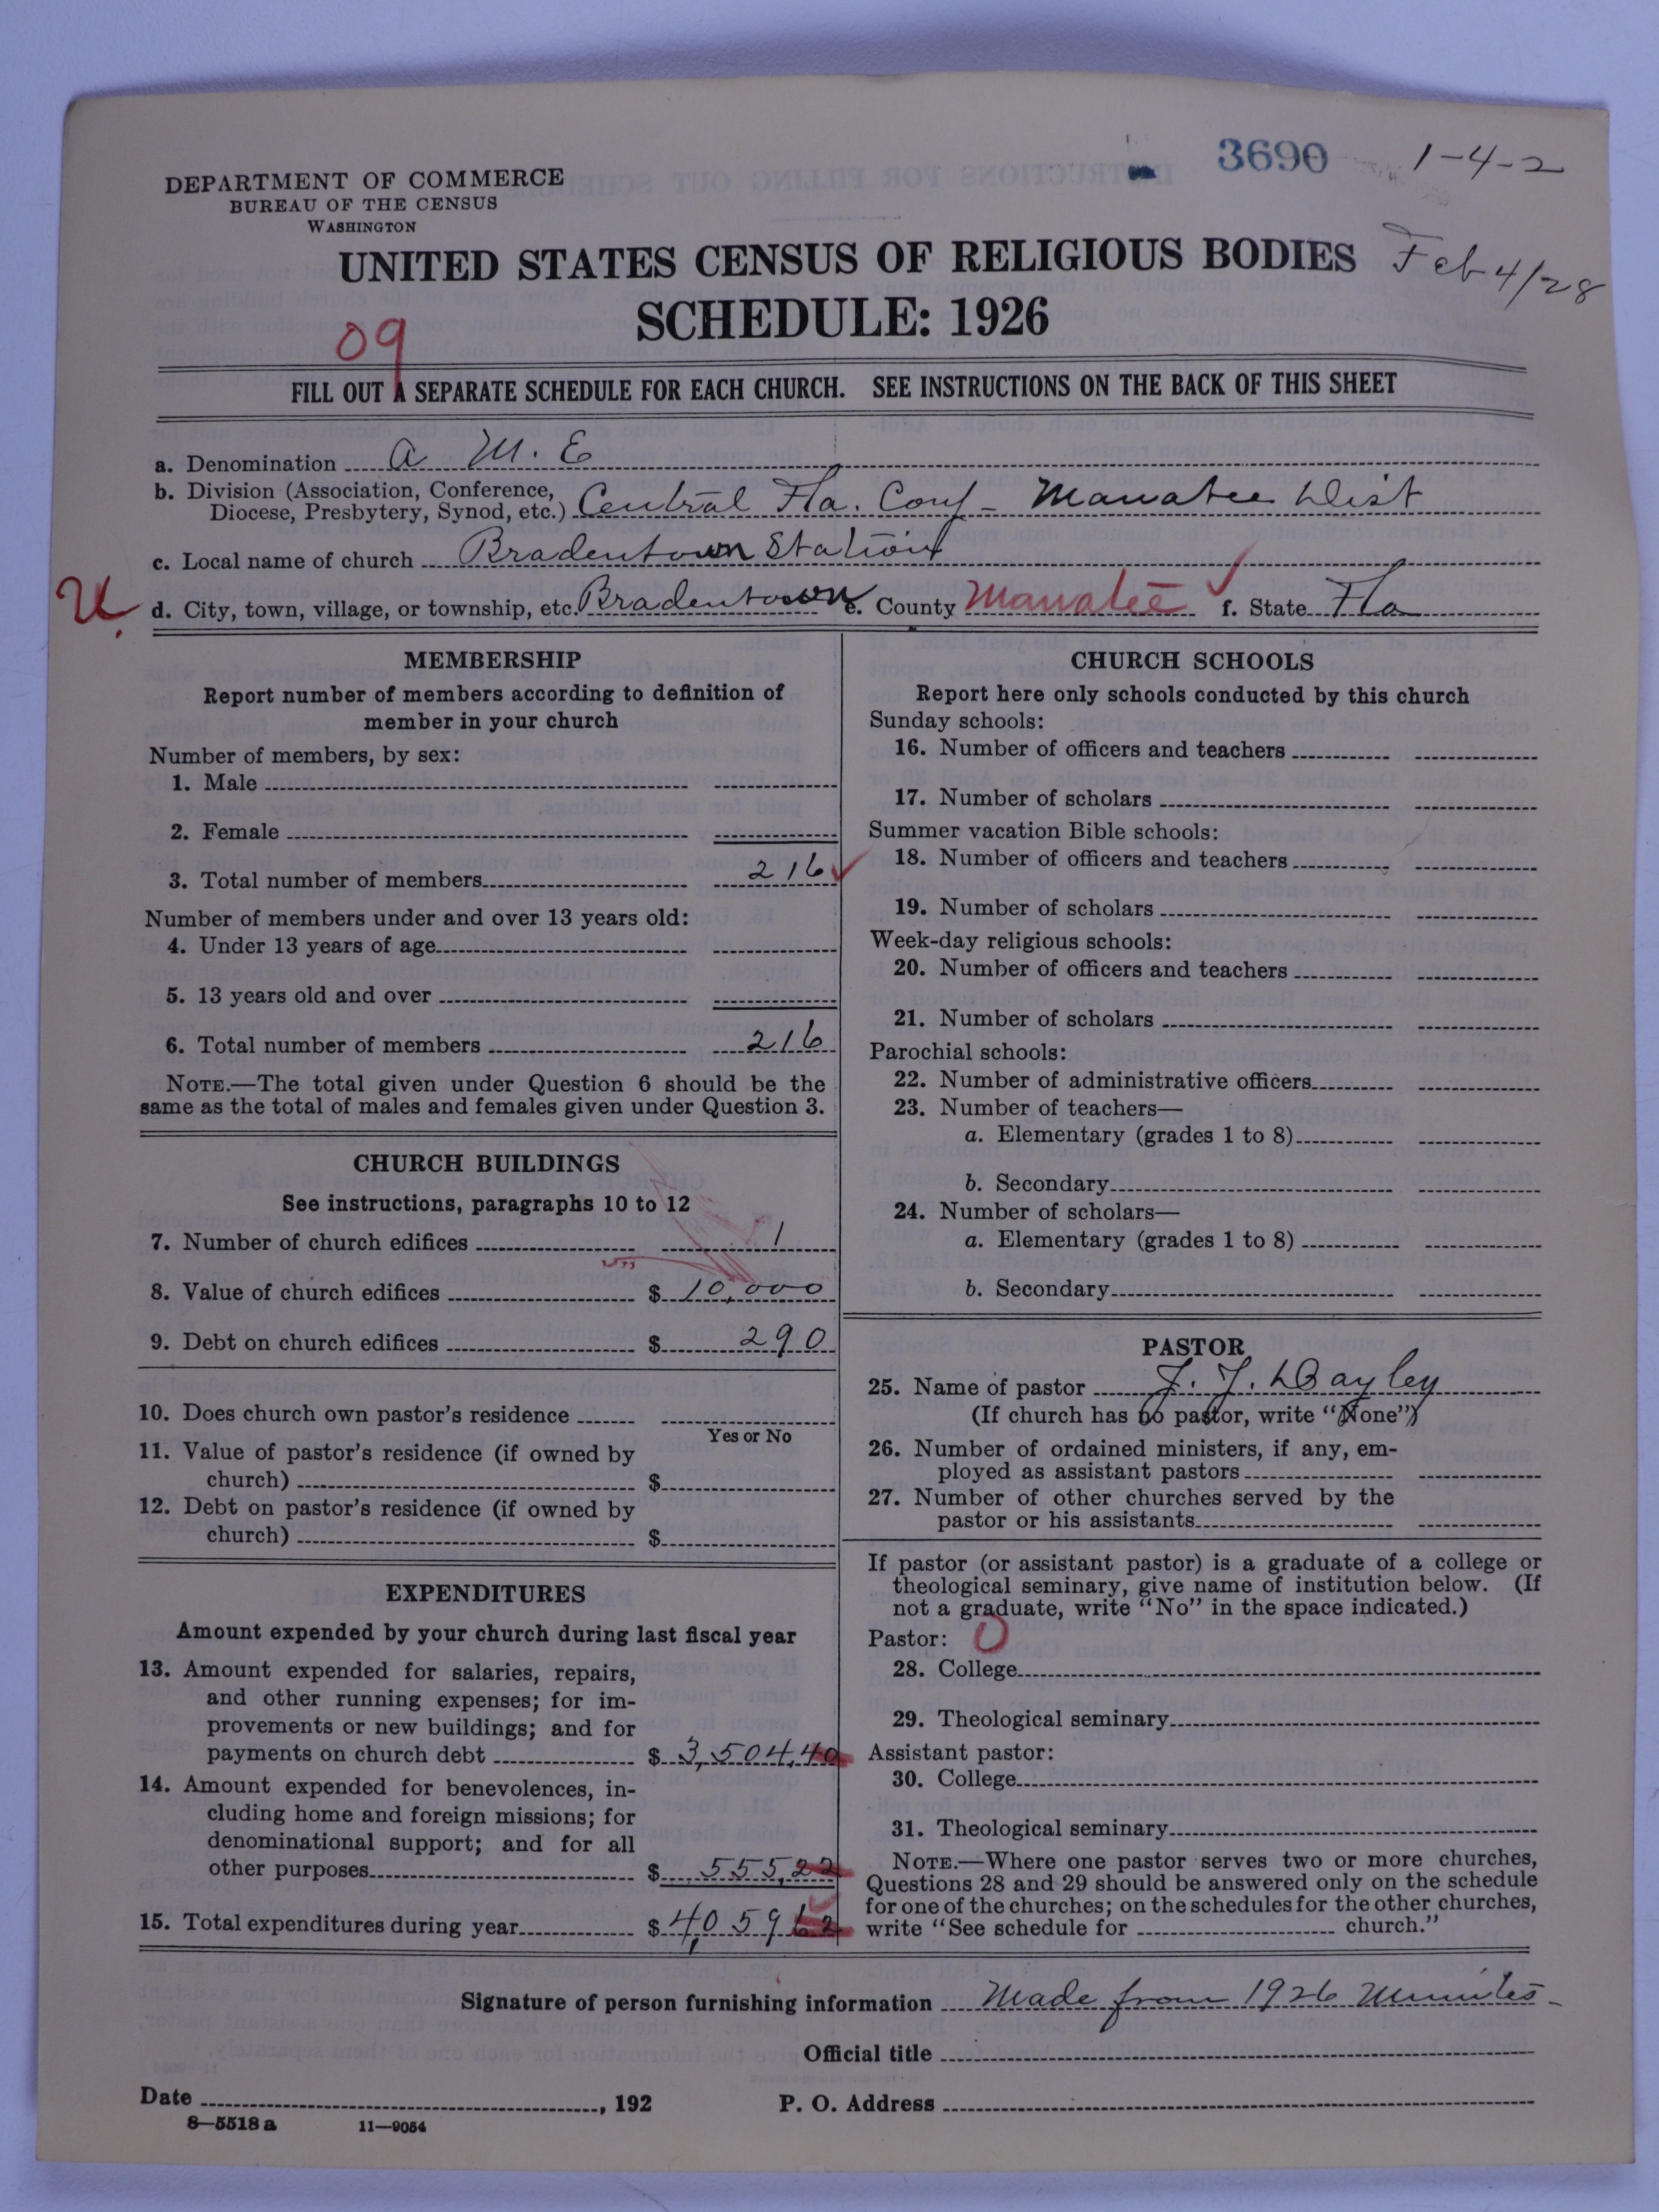 3690 1-4-2
DEPARTMENT OF COMMERCE
BUREAU OF THE CENSUS
WASHINGTON
UNITED STATES CENSUS OF RELIGIOUS BODIES Feb 4/28
SCHEDULE: 1926
09
FILL OUT A SEPARATE SCHEDULE FOR EACH CHURCH. SEE INSTRUCTIONS ON THE BACK OF THIS SHEET
a. Denomination A M. E
b. Division (Association, Conference,
Diocese, Presbytery, Synod, etc.) Central Fla. Conf - Manatee Dist
c. Local name of church Bradentown Station
d. City, town, village, or township, etc. Bradentown e. County Manatee f. State Fla
MEMBERSHIP
Report number of members according to definition of
member in your church
Number of members, by sex:
1. Male
2. Female
3. Total number of members 216
Number of members under and over 13 years old:
4. Under 13 years of age
5. 13 years old and over
6. Total number of members 216
NOTE.—The total given under Question 6 should be the
same as the total of males and females given under Question 3.
CHURCH BUILDINGS
See instructions, paragraphs 10 to 12
7. Number of church edifices 1
8. Value of church edifices $ 10,000
9. Debt on church edifices $ 290
10. Does church own pastor's residence
Yes or No
11. Value of pastor's residence (if owned by
church) $
12. Debt on pastor's residence (if owned by
church) $
EXPENDITURES
Amount expended by your church during last fiscal year
13. Amount expended for salaries, repairs,
and other running expenses; for im-
provements or new buildings; and for
payments on church debt $ 3,504.40
14. Amount expended for benevolences, in-
cluding home and foreign missions; for
denominational support; and for all
other purposes $ 555.22
15. Total expenditures during year $ 4,059 62
CHURCH SCHOOLS
Report here only schools conducted by this church
Sunday schools:
16. Number of officers and teachers
17. Number of scholars
Summer vacation Bible schools:
18. Number of officers and teachers
19. Number of scholars
Week-day religious schools:
20. Number of officers and teachers
21. Number of scholars
Parochial schools:
22. Number of administrative officers
23. Number of teachers—
a. Elementary (grades 1 to 8)
b. Secondary
24. Number of scholars—
a. Elementary (grades 1 to 8)
b. Secondary
PASTOR
25. Name of pastor
(If church has no pastor, write "None")
26. Number of ordained ministers, if any, em-
ployed as assistant pastors
27. Number of other churches served by the
pastor or his assistants
If pastor (or assistant pastor) is a graduate of a college or
theological seminary, give name of institution below. (If
not a graduate, write "No" in the space indicated.)
Pastor: 0
28. College
29. Theological seminary
Assistant pastor:
30. College
31. Theological seminary
NOTE.—Where one pastor serves two or more churches,
Questions 28 and 29 should be answered only on the schedule
for one of the churches; on the schedules for the other churches,
write "See schedule for church."
Signature of person furnishing information Made from 1926 Minutes-
Official title
Date , 192 P. O. Address
8—5518 a 11—9054